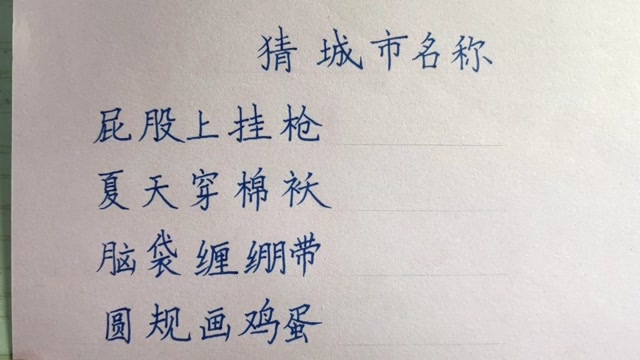 猜城市名称
屁股上挂枪
夏天穿棉袄
脑袋缠绷带
圆规画鸡蛋